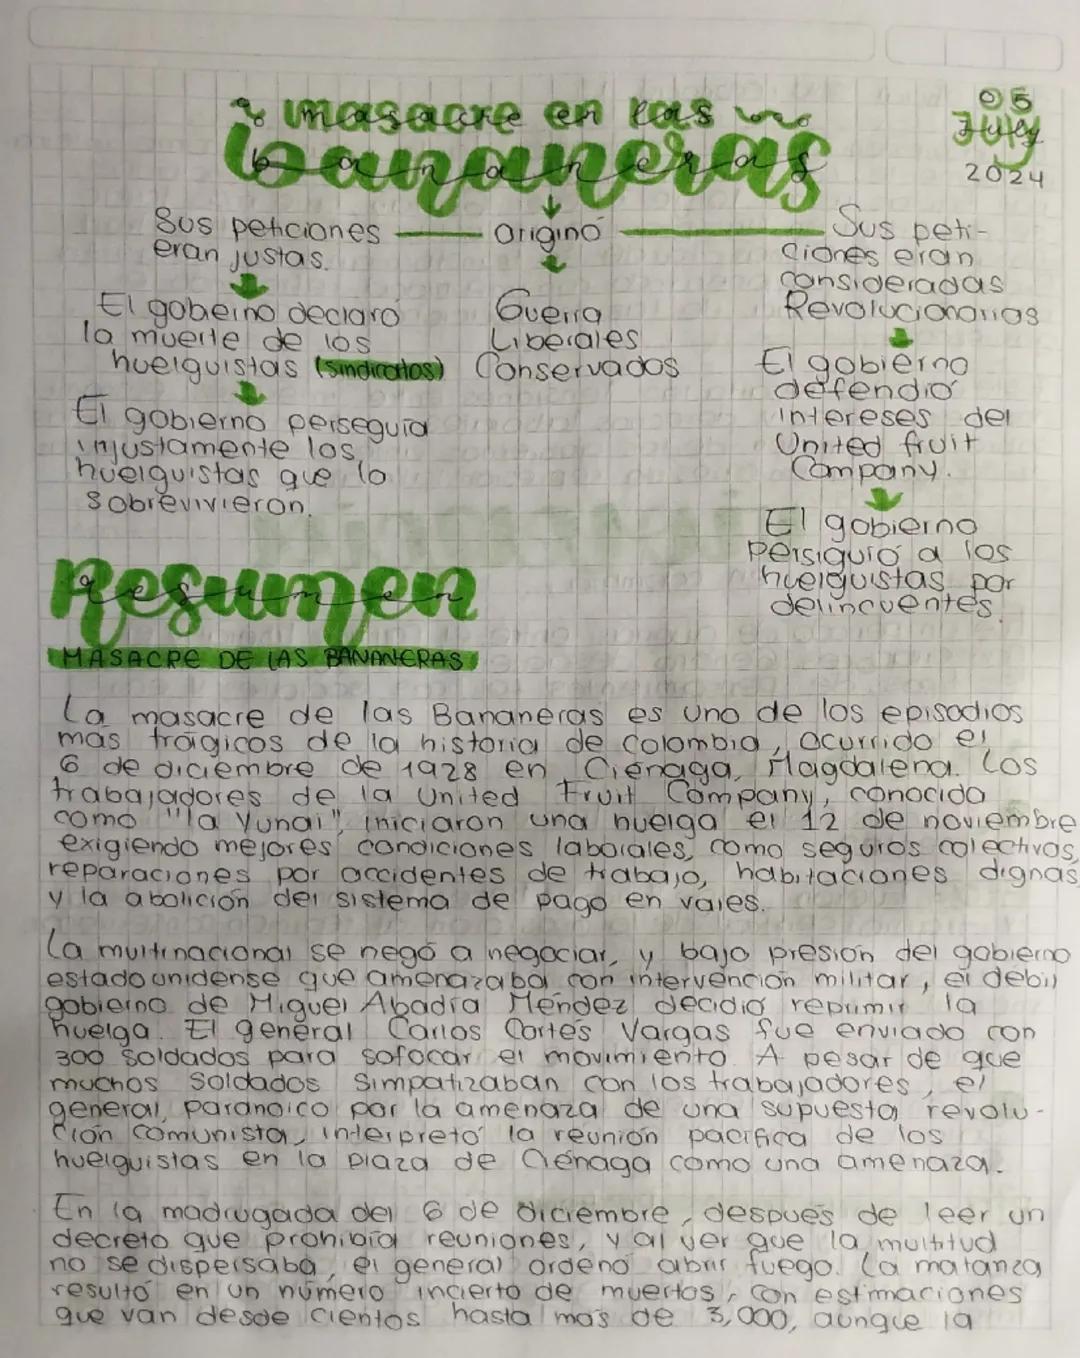 masacre en las
bananeras
05
July
2024
Sus peticiones
eran justas.
El gobierno declaró
la muerte de los
huelguistas (sindicatos)
El gobierno perseguía
injustamente los
huelguistas que lo
sobrevivieron.
originó
Guerra
Liberales
Conservados
Sus peti-
ciones eran
consideradas
Revolucionarias
El gobierno
defendió
intereses del
United fruit
Company.
El gobierno
persiguió a los
huelguistas por
delincuentes.
Resumen
MASACRE DE LAS BANANERAS
La masacre de las Bananeras es uno de los episodios
más trágicos de la historia de Colombia, ocurrido el
6 de diciembre de 1928 en Ciénaga, Magdalena. Los
trabajadores de la United Fruit Company, conocida
como "la Yunai", iniciaron una huelga el 12 de noviembre
exigiendo mejores condiciones laborales, como seguros colectivos,
reparaciones por accidentes de trabajo, habitaciones dignas
y la abolición del sistema de pago en vales.
La multinacional se negó a negociar, y bajo presión del gobierno
estadounidense que amenazaba con intervención militar, el débil
gobierno de Miguel Abadía Méndez decidió reprimir la
huelga. El general Carlos Cortés Vargas fue enviado con
300 soldados para sofocar el movimiento. A pesar de que
muchos soldados simpatizaban con los trabajadores, el
general, paranoico por la amenaza de una supuesta revolu-
ción comunista, interpretó la reunión pacífica de los
huelguistas en la plaza de Ciénaga como una amenaza.
En la madrugada del 6 de diciembre, después de leer un
decreto que prohibía reuniones, y al ver que la multitud
no se dispersaba, el general ordenó abrir fuego. La matanza
resultó en un número incierto de muertos, con estimaciones
que van desde cientos hasta más de 3,000, aunque la